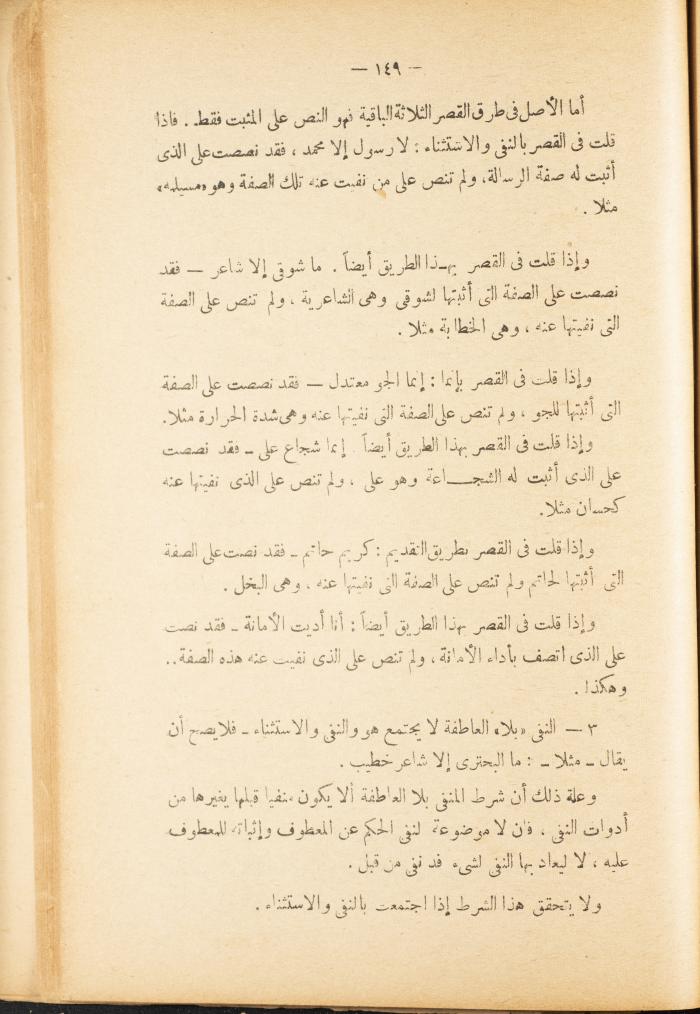 — ١٤٩ —
أما الأصل فى طرق القصر الثلاثة الباقية فهو النص على المثبت فقط. . فاذا
قلت فى القصر بالنفى والاستثناء : لا رسول إلا محمد ، فقد نصصت على الذى
أثبت له صفة الرسالة، ولم تنص على من نفيت عنه تلك الصفة وهو «مسيلمه»
مثلا .
وإذا قلت فى القصر بهذا الطريق أيضاً . ما شوقى إلا شاعر — فقد
نصصت على الصفة التى أثبتها لشوقى وهى الشاعرية ، ولم تنص على الصفة
التى نفيتها عنه ، وهى الخطابة مثلا .
وإذا قلت فى القصر بإنما : إنما الجو معتدل — فقد نصصت على الصفة
التى أثبتها للجو ، ولم تنص على الصفة التى نفيتها عنه وهى شدة الحرارة مثلا.
وإذا قلت فى القصر بهذا الطريق أيضاً . إنما شجاع على ـ فقد نصصت
على الذى أثبت له الشجـــاعة وهو على ، ولم تنص على الذى نفيتها عنه
كحسان مثلا.
وإذا قلت فى القصر بطريق التقديم : كريم حاتم ـ فقد نصت على الصفة
التى أثبتها لحاتم ولم تنص على الصفة التى نفيتها عنه ، وهى البخل .
وإذا قلت فى القصر بهذا الطريق أيضاً : أنا أديت الأمانة ـ فقد نصت
على الذى اتصف بأداء الأمانة ، ولم تنص على الذى نفيت عنه هذه الصفة..
وهكذا .
٣ — النفى «بلا» العاطفة لا يجتمع هو والنفى والاستثناء ـ فلا يصح أن
يقال ـ مثلا ـ : ما البحترى إلا شاعر خطيب .
وعلة ذلك أن شرط المنفى بلا العاطفة ألا يكون منفيا قبلها بغيرها من
أدوات النفى ، فان لا موضوعة لنفى الحكم عن المعطوف وإثباته للمعطوف
عليه ، لا ليعاد بها النفى لشىء قد نفى من قبل .
ولا يتحقق هذا الشرط إذا اجتمعت بالنفى والاستثناء .